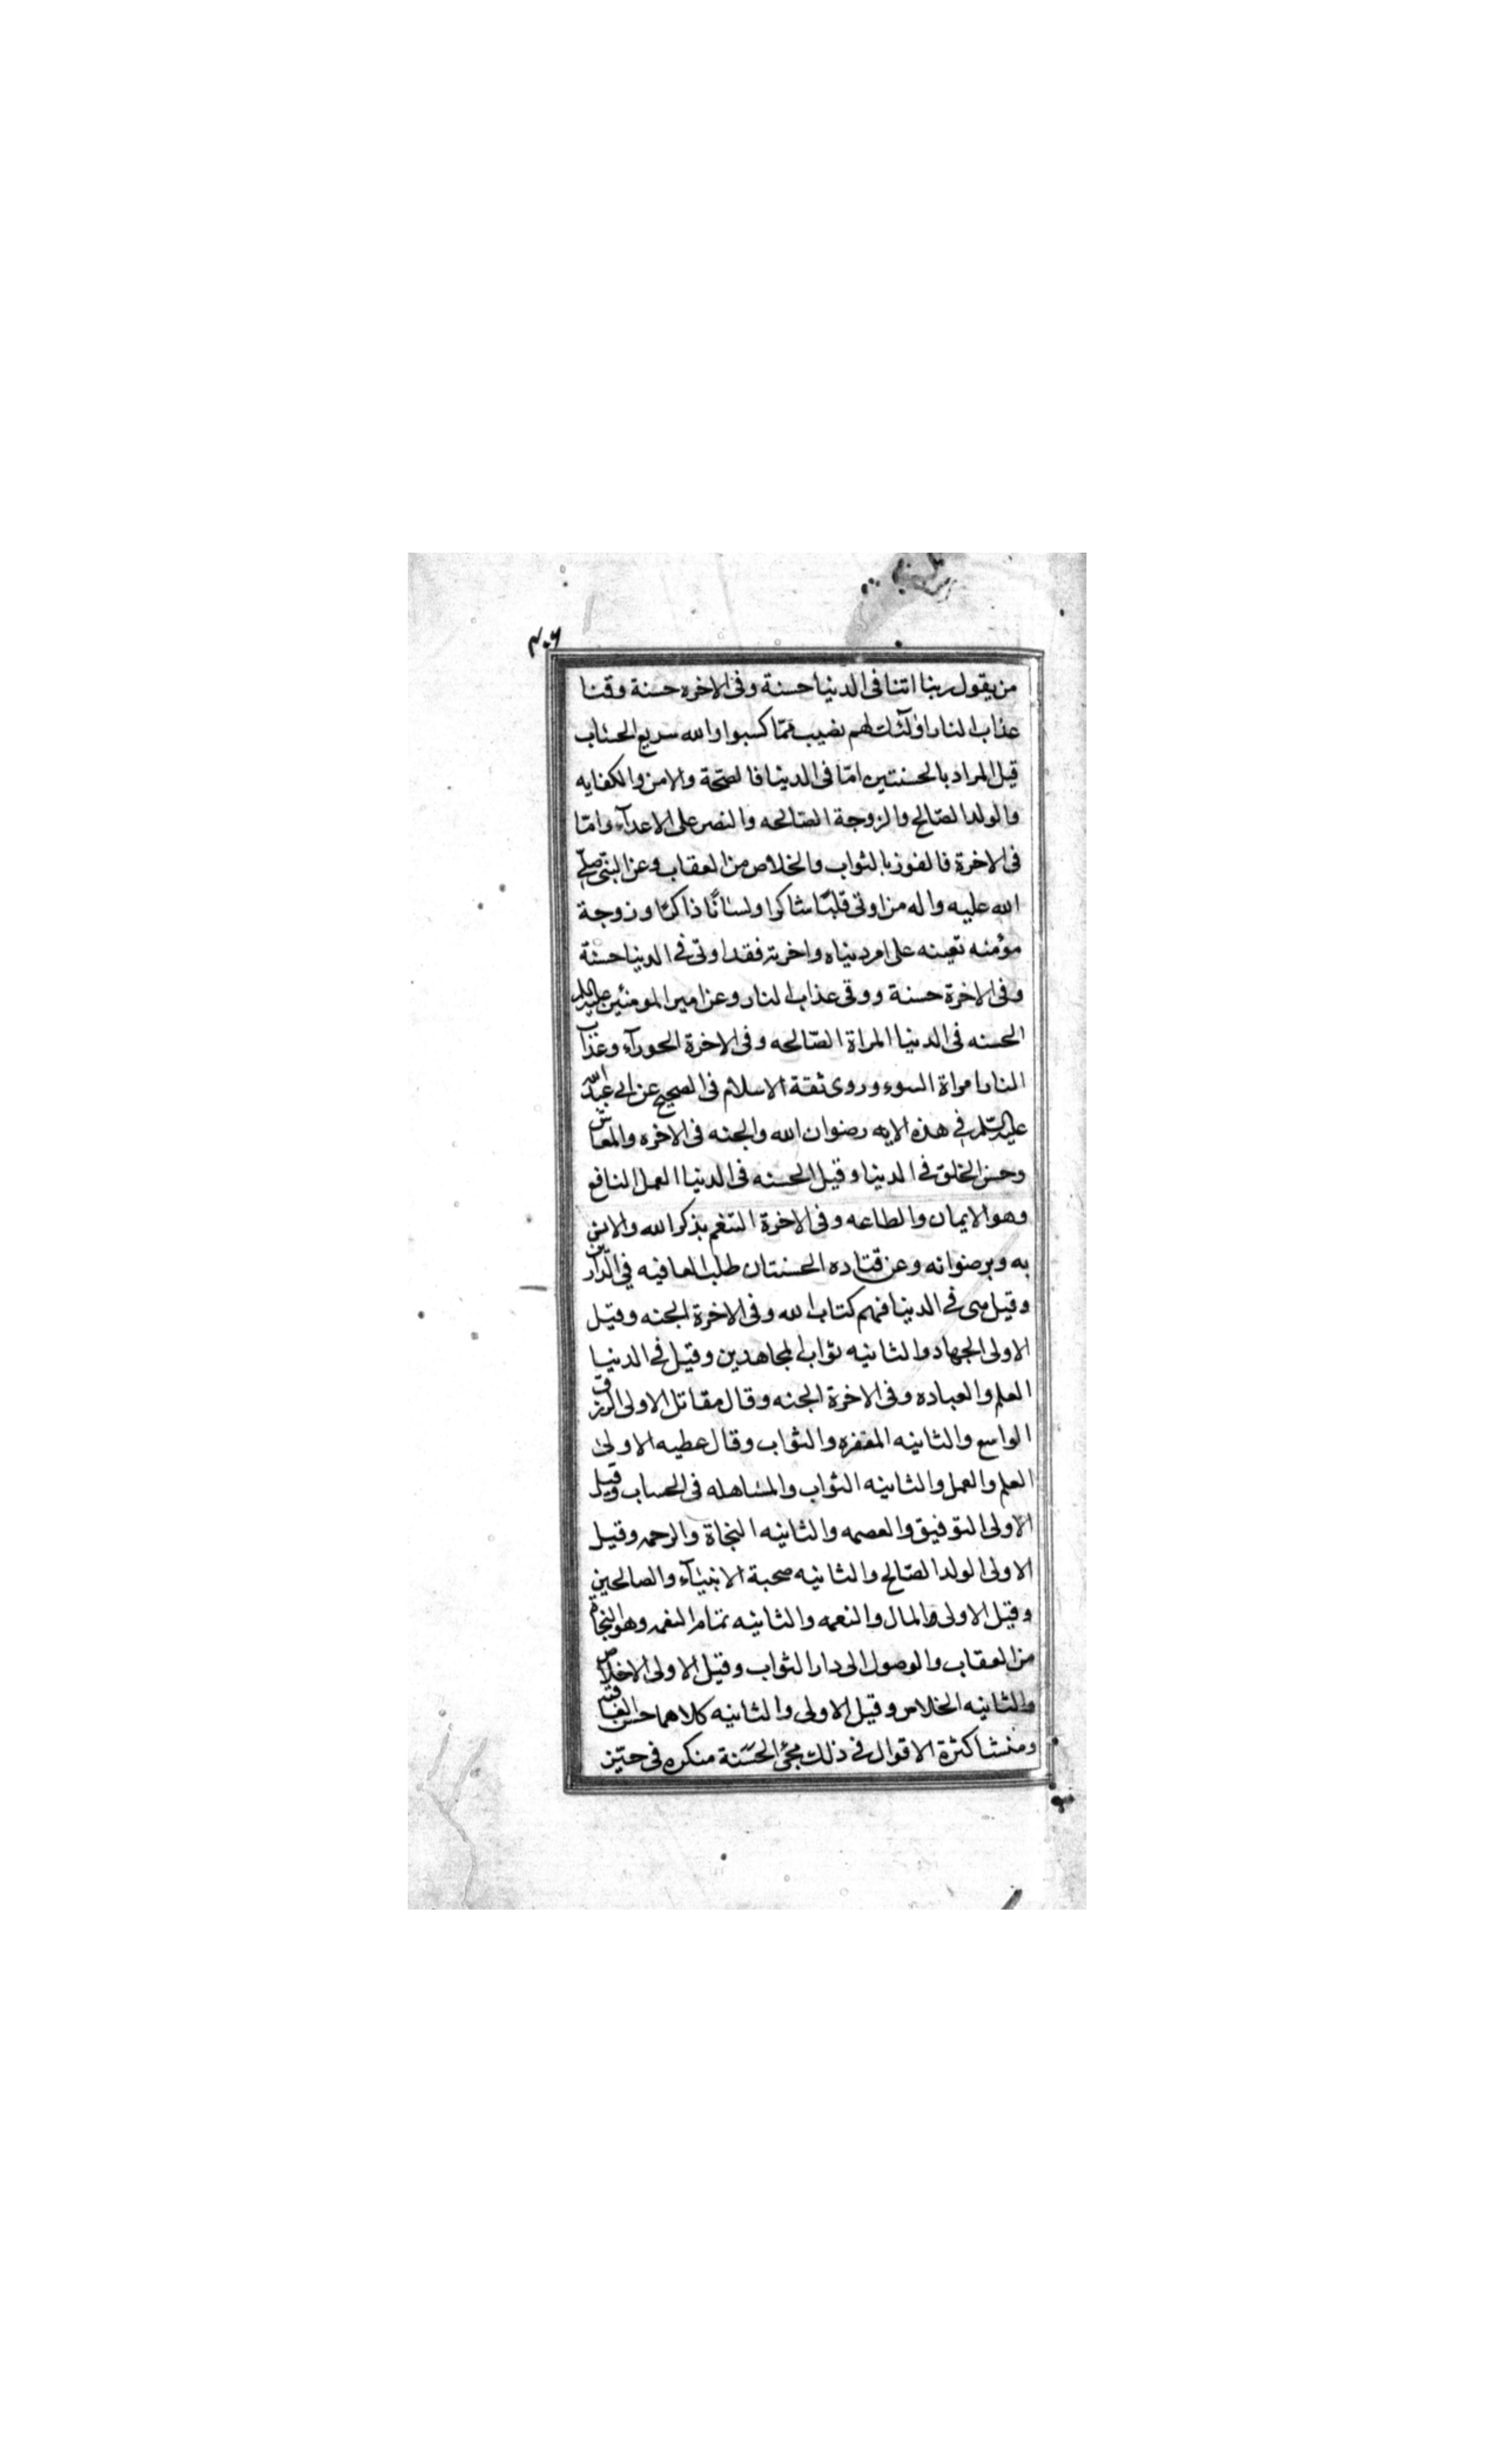 ٤٠٦
من يقول ربنا اتنا فى الدنيا حسنة وفى الاخره حسنة وقنا
عذاب النار اولٓئك لهم نصيب ممّا كسبوا والله سريع الحساب
قيل المراد بالحسنتين امّا فى الدينا فالصحّة والامن والكفايه
والولد الصّالح والزوجة الصّالحه والنصر على الاعدآء وامّا
فى الاخرة فالفوز بالثواب والخلاص من العقاب وعن النبّى صلّى
الله عليه واله من اوتى قلبًا شاكرا ولسانًا ذاكرًا وزوجة
مؤمنه تعينه على امر دنياه واخرته فقد اوتى فى الدنيا حسنة
وفى الاخرة حسنة ووقى عذاب النار وعن امير المومنين عليه السلم
الحسنه فى الدنيا المراة الصّالحه وفى الاخرة الحورآء وعذاب
النار امراة السوء وروى ثقة الاسلام فى الصحيح عن ابى عبد الله
عليه السّلم فى هذه الايه رضوان الله والجنه فى الاخره والمعاش
وحسن الخلق فى الدنيا وقيل الحسنه فى الدنيا العمل النافع
وهو الايمان والطاعه وفى الاخرة التنعم بذكر الله والانس
به وبرضوانه وعن قتاده الحسنتان طلب العافيه فى الدّارين
وقيل هى فى الدنيا فهم كتاب الله وفى الاخرة الجنه وقيل
الاولى الجهاد والثانيه ثواب المجاهدين وقيل فى الدنيا
العلم والعباده وفى الاخرة الجنه وقال مقاتل الاولى الرزق
الواسع والثانيه المغفره والثواب وقال عطيه الاولى
العلم والعمل والثانيه الثواب والمساهله فى الحساب وقيل
الاولى التوفيق والعصمه والثانيه النجاة والرحمه وقيل
الاولى الولد الصّالح والثانيه صحبة الانبيآء والصالحين
وقيل الاولى والمال والنعمه والثانيه تمام النعمه وهو النجاة
من العقاب والوصول الى دار الثواب وقيل الاولى الاخلاص
والثانيه الخلاص وقيل الاولى والثانيه كلاهما حسن العاقبة
ومنشا كثرة الاقوال فى ذلك مجئ الحسَنة منكره فى حيّز